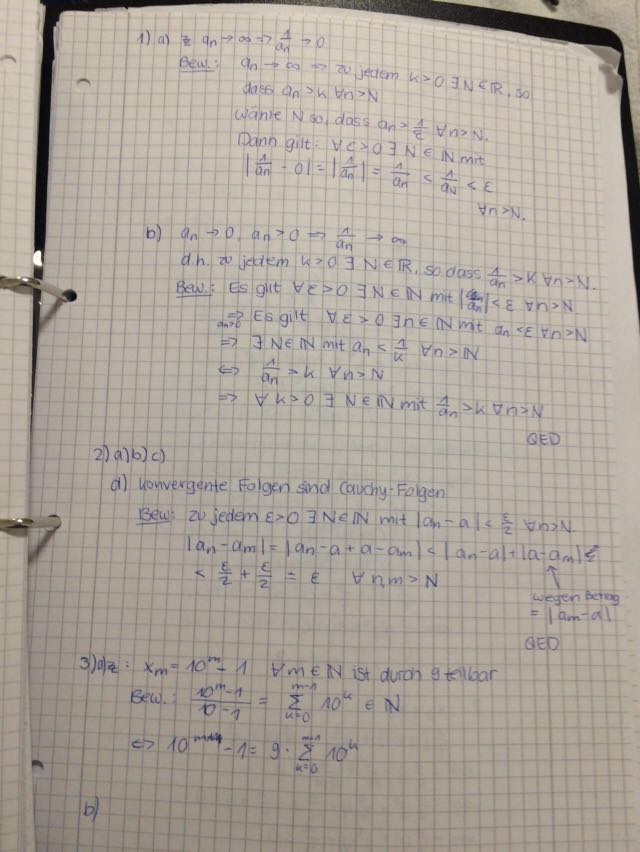 1) a) z an → ∞ => 1/an → 0
Bew.: an → ∞ => zu jedem K>0 ∃ N ∈ ℝ, so
dass an > K ∀n>N
wähle N so, dass an > 1/ε ∀n>N.
Dann gilt: ∀ε>0 ∃ N ∈ ℕ mit
|1/an - 0| = |1/an| = 1/an < 1/aN < ε
∀n>N.
b) an → 0, an > 0 => 1/an → ∞
d.h. zu jedem K>0 ∃ N ∈ ℝ, so dass 1/an > K ∀n>N.
Bew.: Es gilt ∀ε>0 ∃N∈ℕ mit |an| < ε ∀n>N
=> Es gilt ∀ε>0 ∃n∈ℕ mit an<ε ∀n>N
an>0
=> ∃ N∈ℕ mit an < 1/K ∀n>N
<=> 1/an > K ∀n>N
=> ∀ K>0 ∃ N∈ℕ mit 1/an > K ∀n>N
QED
2) a) b) c)
d) konvergente Folgen sind Cauchy-Folgen
Bew: zu jedem ε>0 ∃N∈ℕ mit |an - a| < ε/2 ∀n>N
|an - am| = |an - a + a - am| < |an - a| + |a - am|
< ε/2 + ε/2 = ε ∀ n,m > N
wegen Betrag
= |am - a|
QED
3) a) z: xm = 10^m - 1 ∀m∈ℕ ist durch 9 teilbar
Bew.: (10^m - 1)/(10 - 1) = Σ_{k=0}^{m-1} 10^k ∈ ℕ
<=> 10^m - 1 = 9 · Σ_{k=0}^{m-1} 10^k
b)